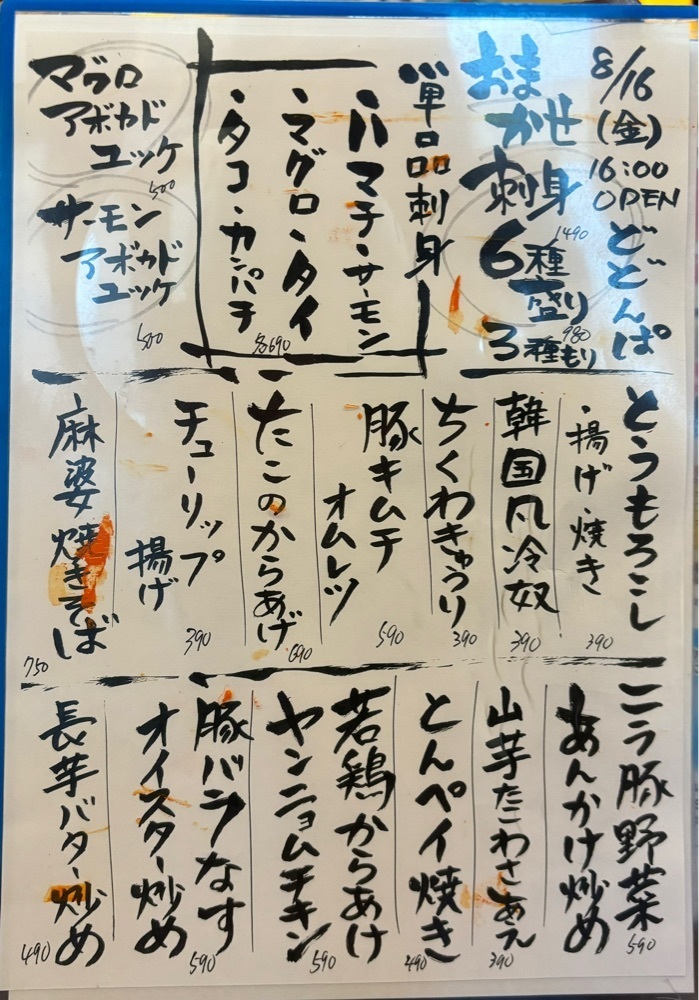 8/16
(金)
16:00
OPEN
どどんぱ
おま
かせ
刺身
1490
6種
盛り
980
3種もり
単品刺身
・ハマチ・サーモン
・マグロ・タイ
・タコ・カンパチ
各690
マグロ
アボカド
ユッケ
500
サーモン
アボカド
ユッケ
500
とうもろこし
・揚げ・焼き
390
韓国風冷奴
390
ちくわきゅうり
390
豚キムチ
オムレツ
590
たこのからあげ
690
チューリップ
揚げ
390
麻婆焼きそば
750
ニラ豚野菜
あんかけ炒め
590
山芋たこわさあえ
390
とんペイ焼き
490
若鶏からあげ
ヤンニョムチキン
590
豚バラなす
オイスター炒め
590
長芋バター炒め
490